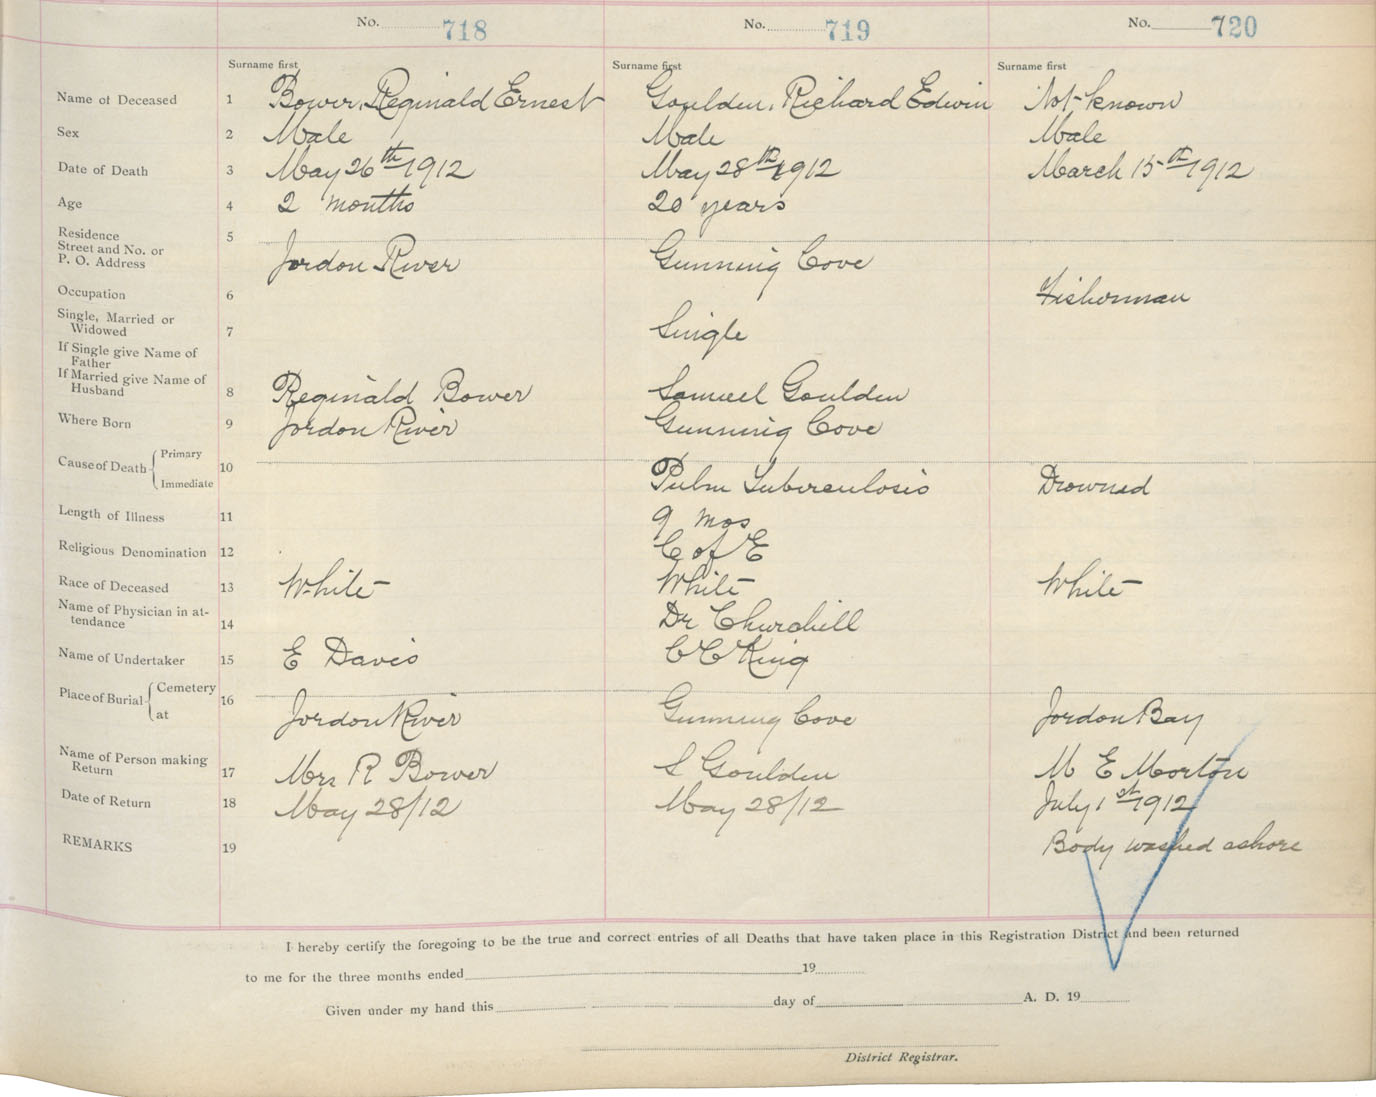 No. 718 No. 719 No. 720
Surname first Surname first Surname first
Name of Deceased 1 Bower, Reginald Ernest Goulden, Richard Edwin Not known
Sex 2 Male Male Male
Date of Death 3 May 26th 1912 May 28th 1912 March 15th 1912
Age 4 2 months 20 years
Residence
Street and No. or
P. O. Address 5 Jordon River Gunning Cove
Occupation 6 Fisherman
Single, Married or
Widowed 7 Single
If Single give Name of
Father
If Married give Name of
Husband 8 Reginald Bower Samuel Goulden
Where Born 9 Jordon River Gunning Cove
Cause of Death Primary
Immediate 10 Pulm Tuberculosis Drowned
Length of Illness 11 9 mos
Religious Denomination 12 C of E
Race of Deceased 13 White White White
Name of Physician in at-
tendance 14 Dr Churchill
Name of Undertaker 15 E Davis C C King
Place of Burial Cemetery
at 16 Jordon River Gunning Cove Jordon Bay
Name of Person making
Return 17 Mrs R Bower S Goulden M E Morton
Date of Return 18 May 28/12 May 28/12 July 1st 1912
REMARKS 19 Body washed ashore
I hereby certify the foregoing to be the true and correct entries of all Deaths that have taken place in this Registration District and been returned
to me for the three months ended 19
Given under my hand this day of A. D. 19
District Registrar.